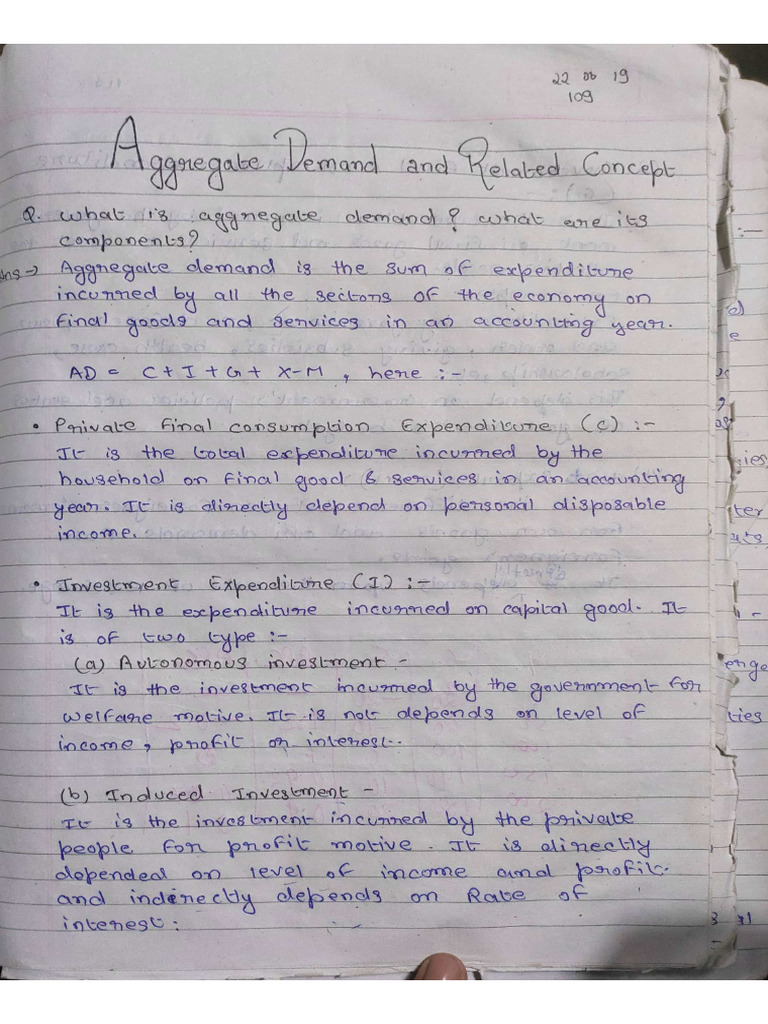 22 06 19
109
Aggregate Demand and Related Concept
Q. What is aggregate demand? What are its
components?
Ans → Aggregate demand is the sum of expenditure
incurred by all the sectors of the economy on
final goods and services in an accounting year.
AD = C + I + G + X-M, here :-
• Private final consumption Expenditure (C) :-
It is the total expenditure incurred by the
household on final good & services in an accounting
year. It is directly depend on personal disposable
income.
• Investment Expenditure (I) :-
It is the expenditure incurred on capital good. It
is of two type :-
(a) Autonomous investment -
It is the investment incurred by the government for
welfare motive. It is not depends on level of
income, profit or interest.
(b) Induced Investment -
It is the investment incurred by the private
people for profit motive. It is directly
depended on level of income and profit.
and indirectly depends on Rate of
interest.